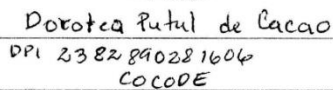 Dorotea Putul de Cacao
DPI 2382890281606
COCODE